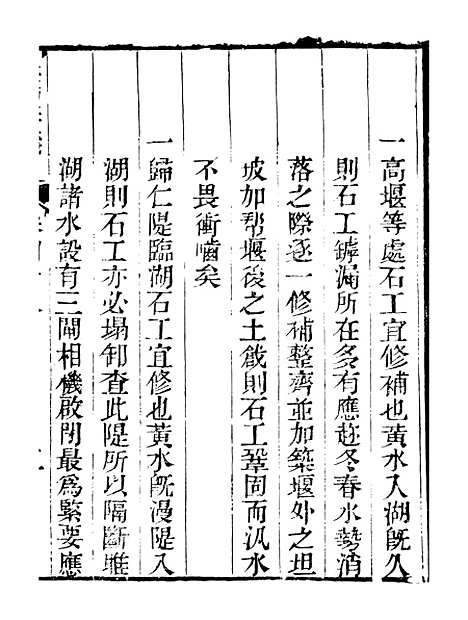 一高堰等處石工宜修補也黃水入湖既久
則石工罅漏所在多有應趁冬春水勢消
落之際逐一修補整齊並加築堰外之坦
坡加帮堰後之土戧則石工鞏固而汛水
不畏衝嚙矣
一歸仁隄臨湖石工宜修也黃水既漫隄入
湖則石工亦必塌卸查此隄所以隔斷睢
湖諸水設有三閘相機啟閉最為緊要應